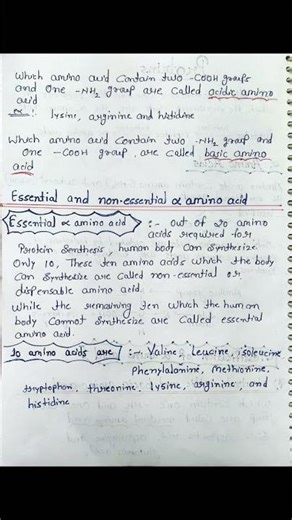 Which amino acid contain two -COOH groups
and one -NH₂ group are called acidic amino
acid
Ex :- lysine, arginine and histidine
Which amino acid contain two -NH₂ group and
one -COOH group, are called basic amino
acid
Essential and non-essential α amino acid
Essential α amino acid :- out of 20 amino
acids required for
Protein synthesis, human body can synthesize
only 10, These ten amino acids which the body
can synthesize are called non-essential or
dispensable amino acid.
While the remaining ten which the human
body cannot synthesize are called essential
amino acid.
10 amino acids are :- Valine, Leucine, isoleucine
Phenylalanine, Methionine,
tryptophan, threonine, lysine, arginine, and
histidine